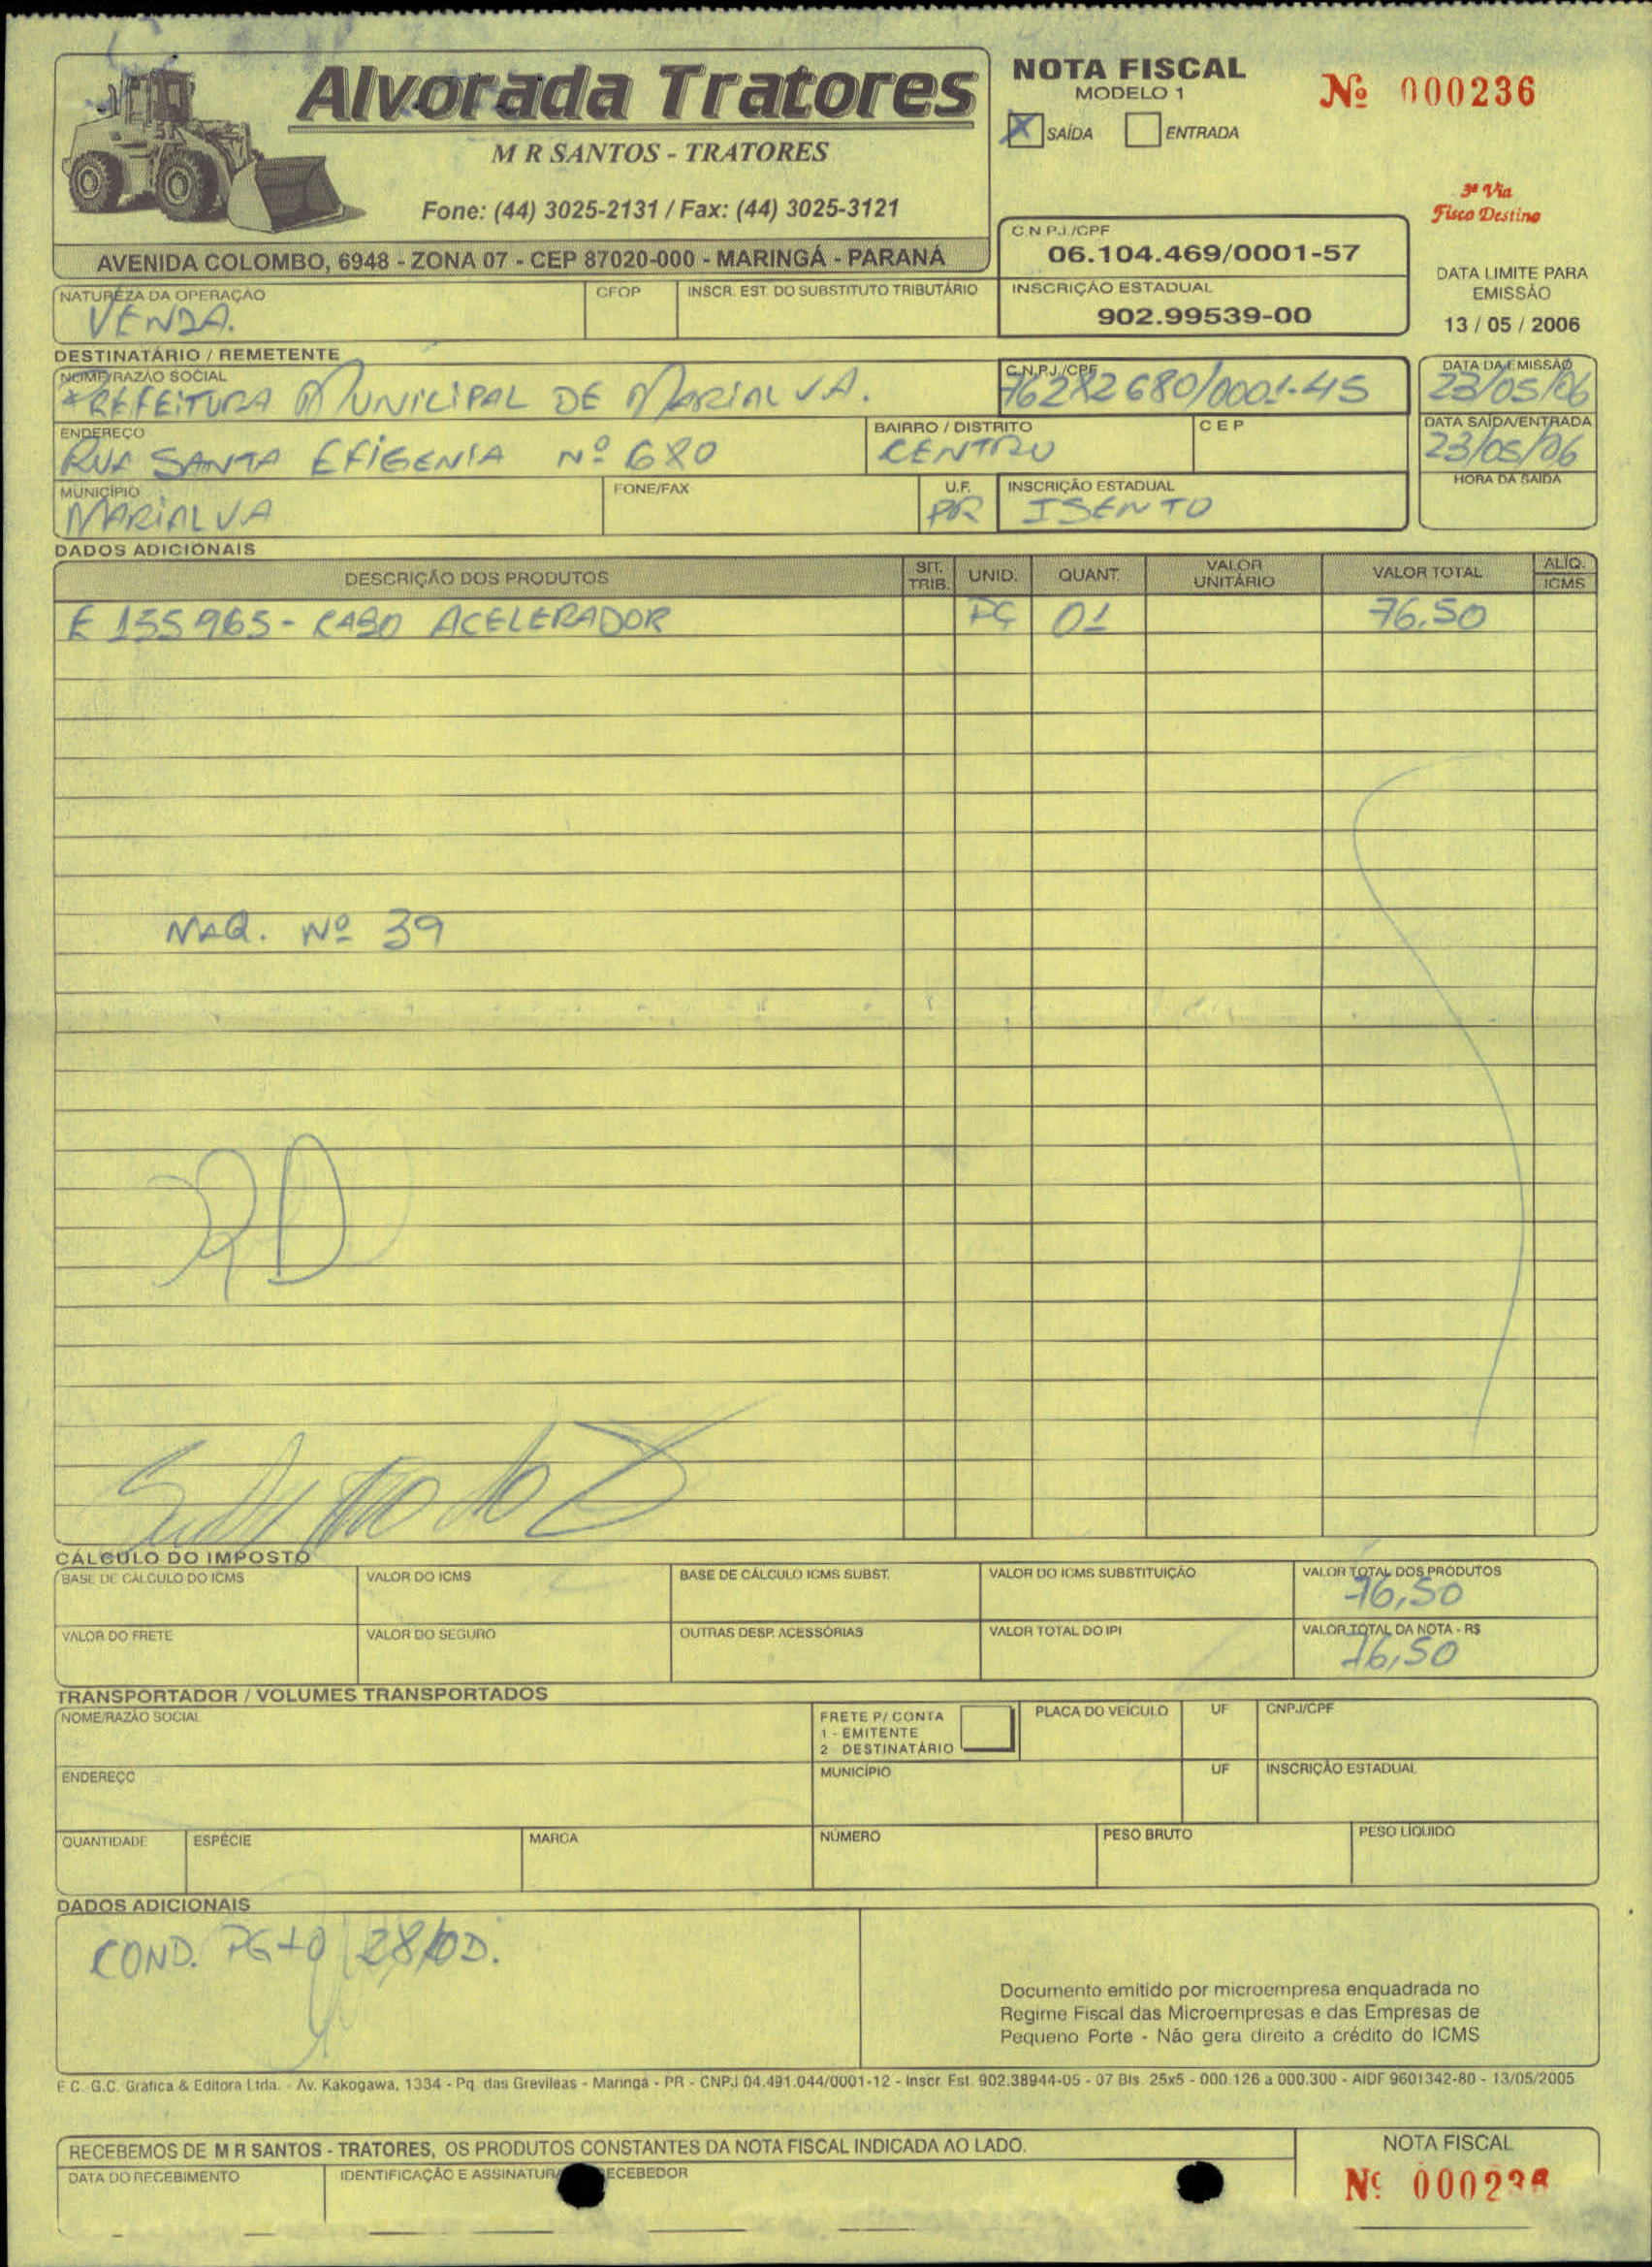 Alvorada Tratores
M R SANTOS - TRATORES
Fone: (44) 3025-2131 / Fax: (44) 3025-3121
AVENIDA COLOMBO, 6948 - ZONA 07 - CEP 87020-000 - MARINGÁ - PARANÁ
NOTA FISCAL
MODELO 1
X SAÍDA ENTRADA
Nº 000236
3ª Via
Fisco Destino
C.N.P.J./CPF
06.104.469/0001-57
INSCRIÇÃO ESTADUAL
902.99539-00
DATA LIMITE PARA
EMISSÃO
13 / 05 / 2006
NATUREZA DA OPERAÇÃO CFOP INSCR. EST. DO SUBSTITUTO TRIBUTÁRIO
VENDA.
DESTINATÁRIO / REMETENTE
NOME/RAZÃO SOCIAL C.N.P.J./CPF DATA DA EMISSÃO
PREFEITURA MUNICIPAL DE MARIALVA. 76282680/0001-45 23/05/06
ENDEREÇO BAIRRO / DISTRITO CEP DATA SAÍDA/ENTRADA
RUA SANTA EFIGENIA Nº 680 CENTRO 23/05/06
MUNICÍPIO FONE/FAX U.F. INSCRIÇÃO ESTADUAL HORA DA SAÍDA
MARIALVA PR ISENTO
DADOS ADICIONAIS
DESCRIÇÃO DOS PRODUTOS SIT. TRIB. UNID. QUANT. VALOR UNITÁRIO VALOR TOTAL ALÍQ. ICMS
E 155965 - CABO ACELERADOR PÇ 01 76,50
MAQ. Nº 39
CÁLCULO DO IMPOSTO
BASE DE CÁLCULO DO ICMS VALOR DO ICMS BASE DE CÁLCULO ICMS SUBST. VALOR DO ICMS SUBSTITUIÇÃO VALOR TOTAL DOS PRODUTOS
76,50
VALOR DO FRETE VALOR DO SEGURO OUTRAS DESP. ACESSÓRIAS VALOR TOTAL DO IPI VALOR TOTAL DA NOTA - R$
76,50
TRANSPORTADOR / VOLUMES TRANSPORTADOS
NOME/RAZÃO SOCIAL FRETE P/ CONTA PLACA DO VEÍCULO UF CNPJ/CPF
1 - EMITENTE
2 - DESTINATÁRIO
ENDEREÇO MUNICÍPIO UF INSCRIÇÃO ESTADUAL
QUANTIDADE ESPÉCIE MARCA NÚMERO PESO BRUTO PESO LÍQUIDO
DADOS ADICIONAIS
COND. PGTO 28/0D.
Documento emitido por microempresa enquadrada no
Regime Fiscal das Microempresas e das Empresas de
Pequeno Porte - Não gera direito a crédito do ICMS
E.C. G.C. Gráfica & Editora Ltda. - Av. Kakogawa, 1334 - Pq. das Grevíleas - Maringá - PR - CNPJ 04.491.044/0001-12 - Inscr. Est. 902.38944-05 - 07 Bls. 25x5 - 000.126 a 000.300 - AIDF 9601342-80 - 13/05/2005
RECEBEMOS DE M R SANTOS - TRATORES, OS PRODUTOS CONSTANTES DA NOTA FISCAL INDICADA AO LADO.
DATA DO RECEBIMENTO IDENTIFICAÇÃO E ASSINATURA RECEBEDOR
NOTA FISCAL
Nº 000236